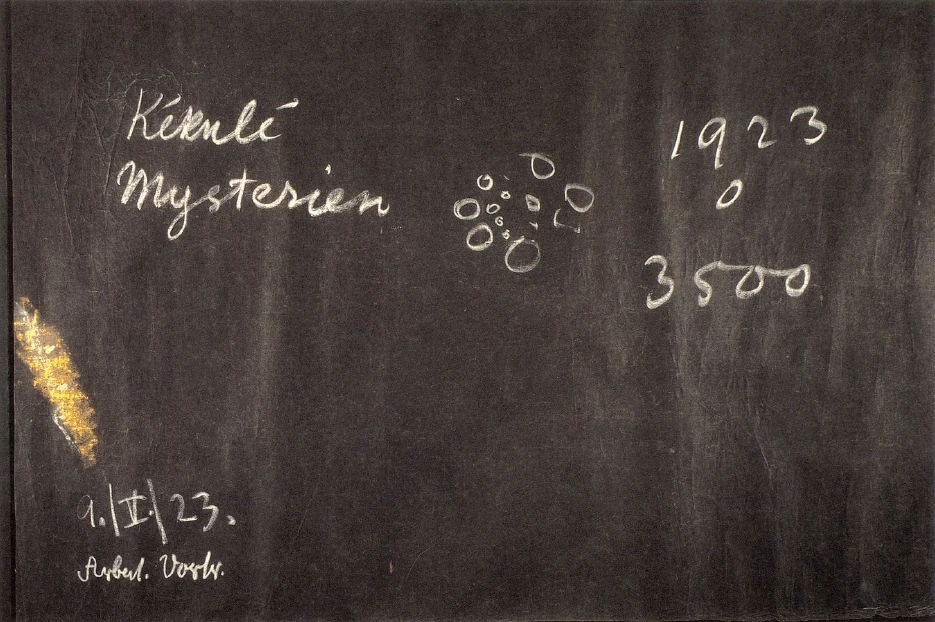 Kékulé
Mysterien
1923
0
3500
9./I./23.
Arbeit. Vortr.